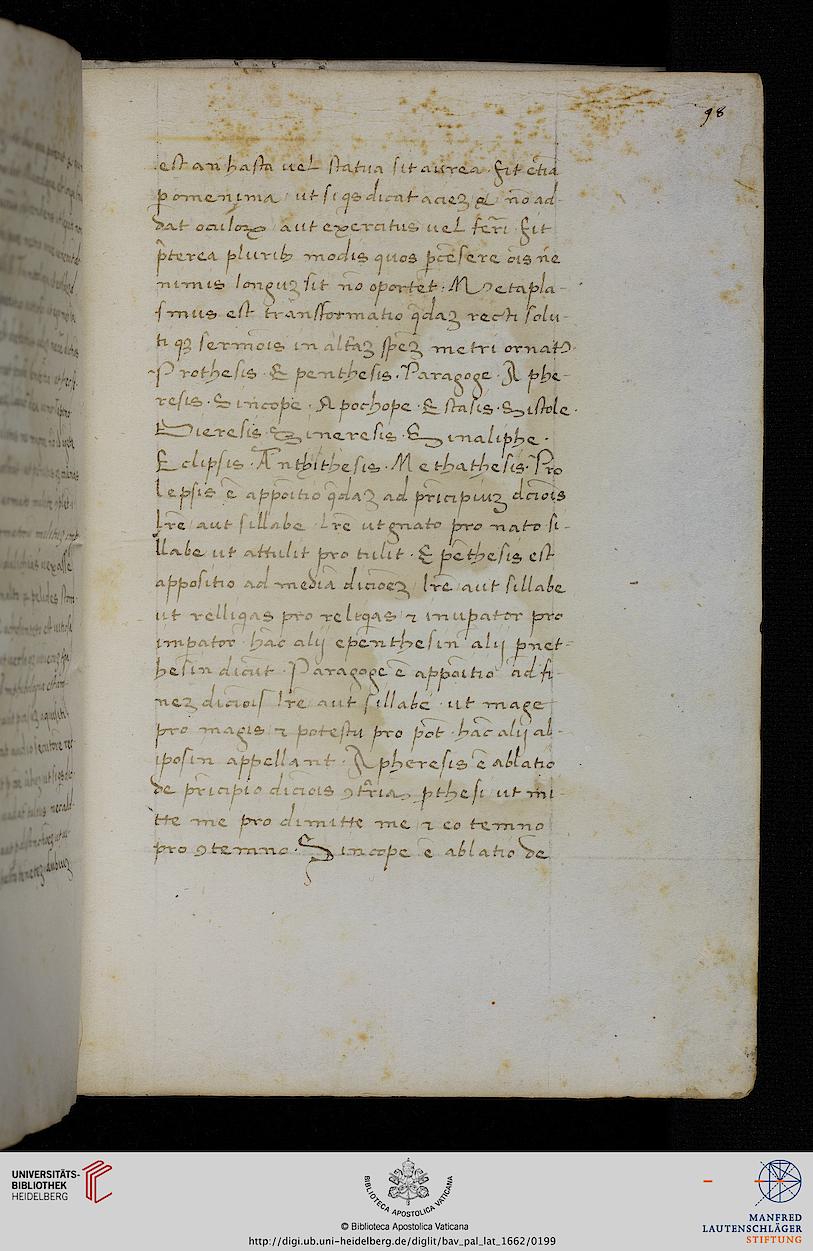 98
est an hasta uel statua sit aurea · fit etiā
p omenima · ut si qs dicat aciez & nō ad-
dat oculoꝝ aut exercitus uel ferri fit
p̄terea pluribꝫ modis quos p̄cēsere oīs ne
nimis longuz sit nō oportet · Metapla-
smus est transformatio q̄daz recti solu-
ti qꝫ sermōis in alt̄az spēz metri ornatꝰ
Prothesis · Epenthesis · Paragoge · A phe-
resis · Sincope · Apochope · Estasis · Sistole ·
Dieresis · Sineresis · Sinaliphe ·
Eclipsis · Anthithesis · Methathesis · Pro
lepsis ē appōitio q̄daz ad prīcipiuz dcīōis
lrē aut sillabe · lrē ut gnato pro nato si-
llabe ut attulit pro tulit · Epēthesis est
appositio ad mediā dicioēz lrē aut sillabe
ut relliqas pro reliq̄as ⁊ inupator pro
impator · hāc alij epenthesin alij p̄net-
hesin dicūt · Paragoge ē appōitio ad fi-
nez dicīōis lrē aut sillabe · ut mage
pro magis ⁊ potestu pro pōt · hāc alij al-
iposin appellant · A pheresis ē ablatio
de prīcipio dicīōis ꝯtr̄ia p̄thesi ut mi-
tte me pro dimitte me ⁊ eo temno
pro ꝯtemno · Sincope ē ablatio de
UNIVERSITÄTS-
BIBLIOTHEK
HEIDELBERG
BIBLIOTECA APOSTOLICA VATICANA
© Biblioteca Apostolica Vaticana
http://digi.ub.uni-heidelberg.de/diglit/bav_pal_lat_1662/0199
MANFRED
LAUTENSCHLÄGER
STIFTUNG